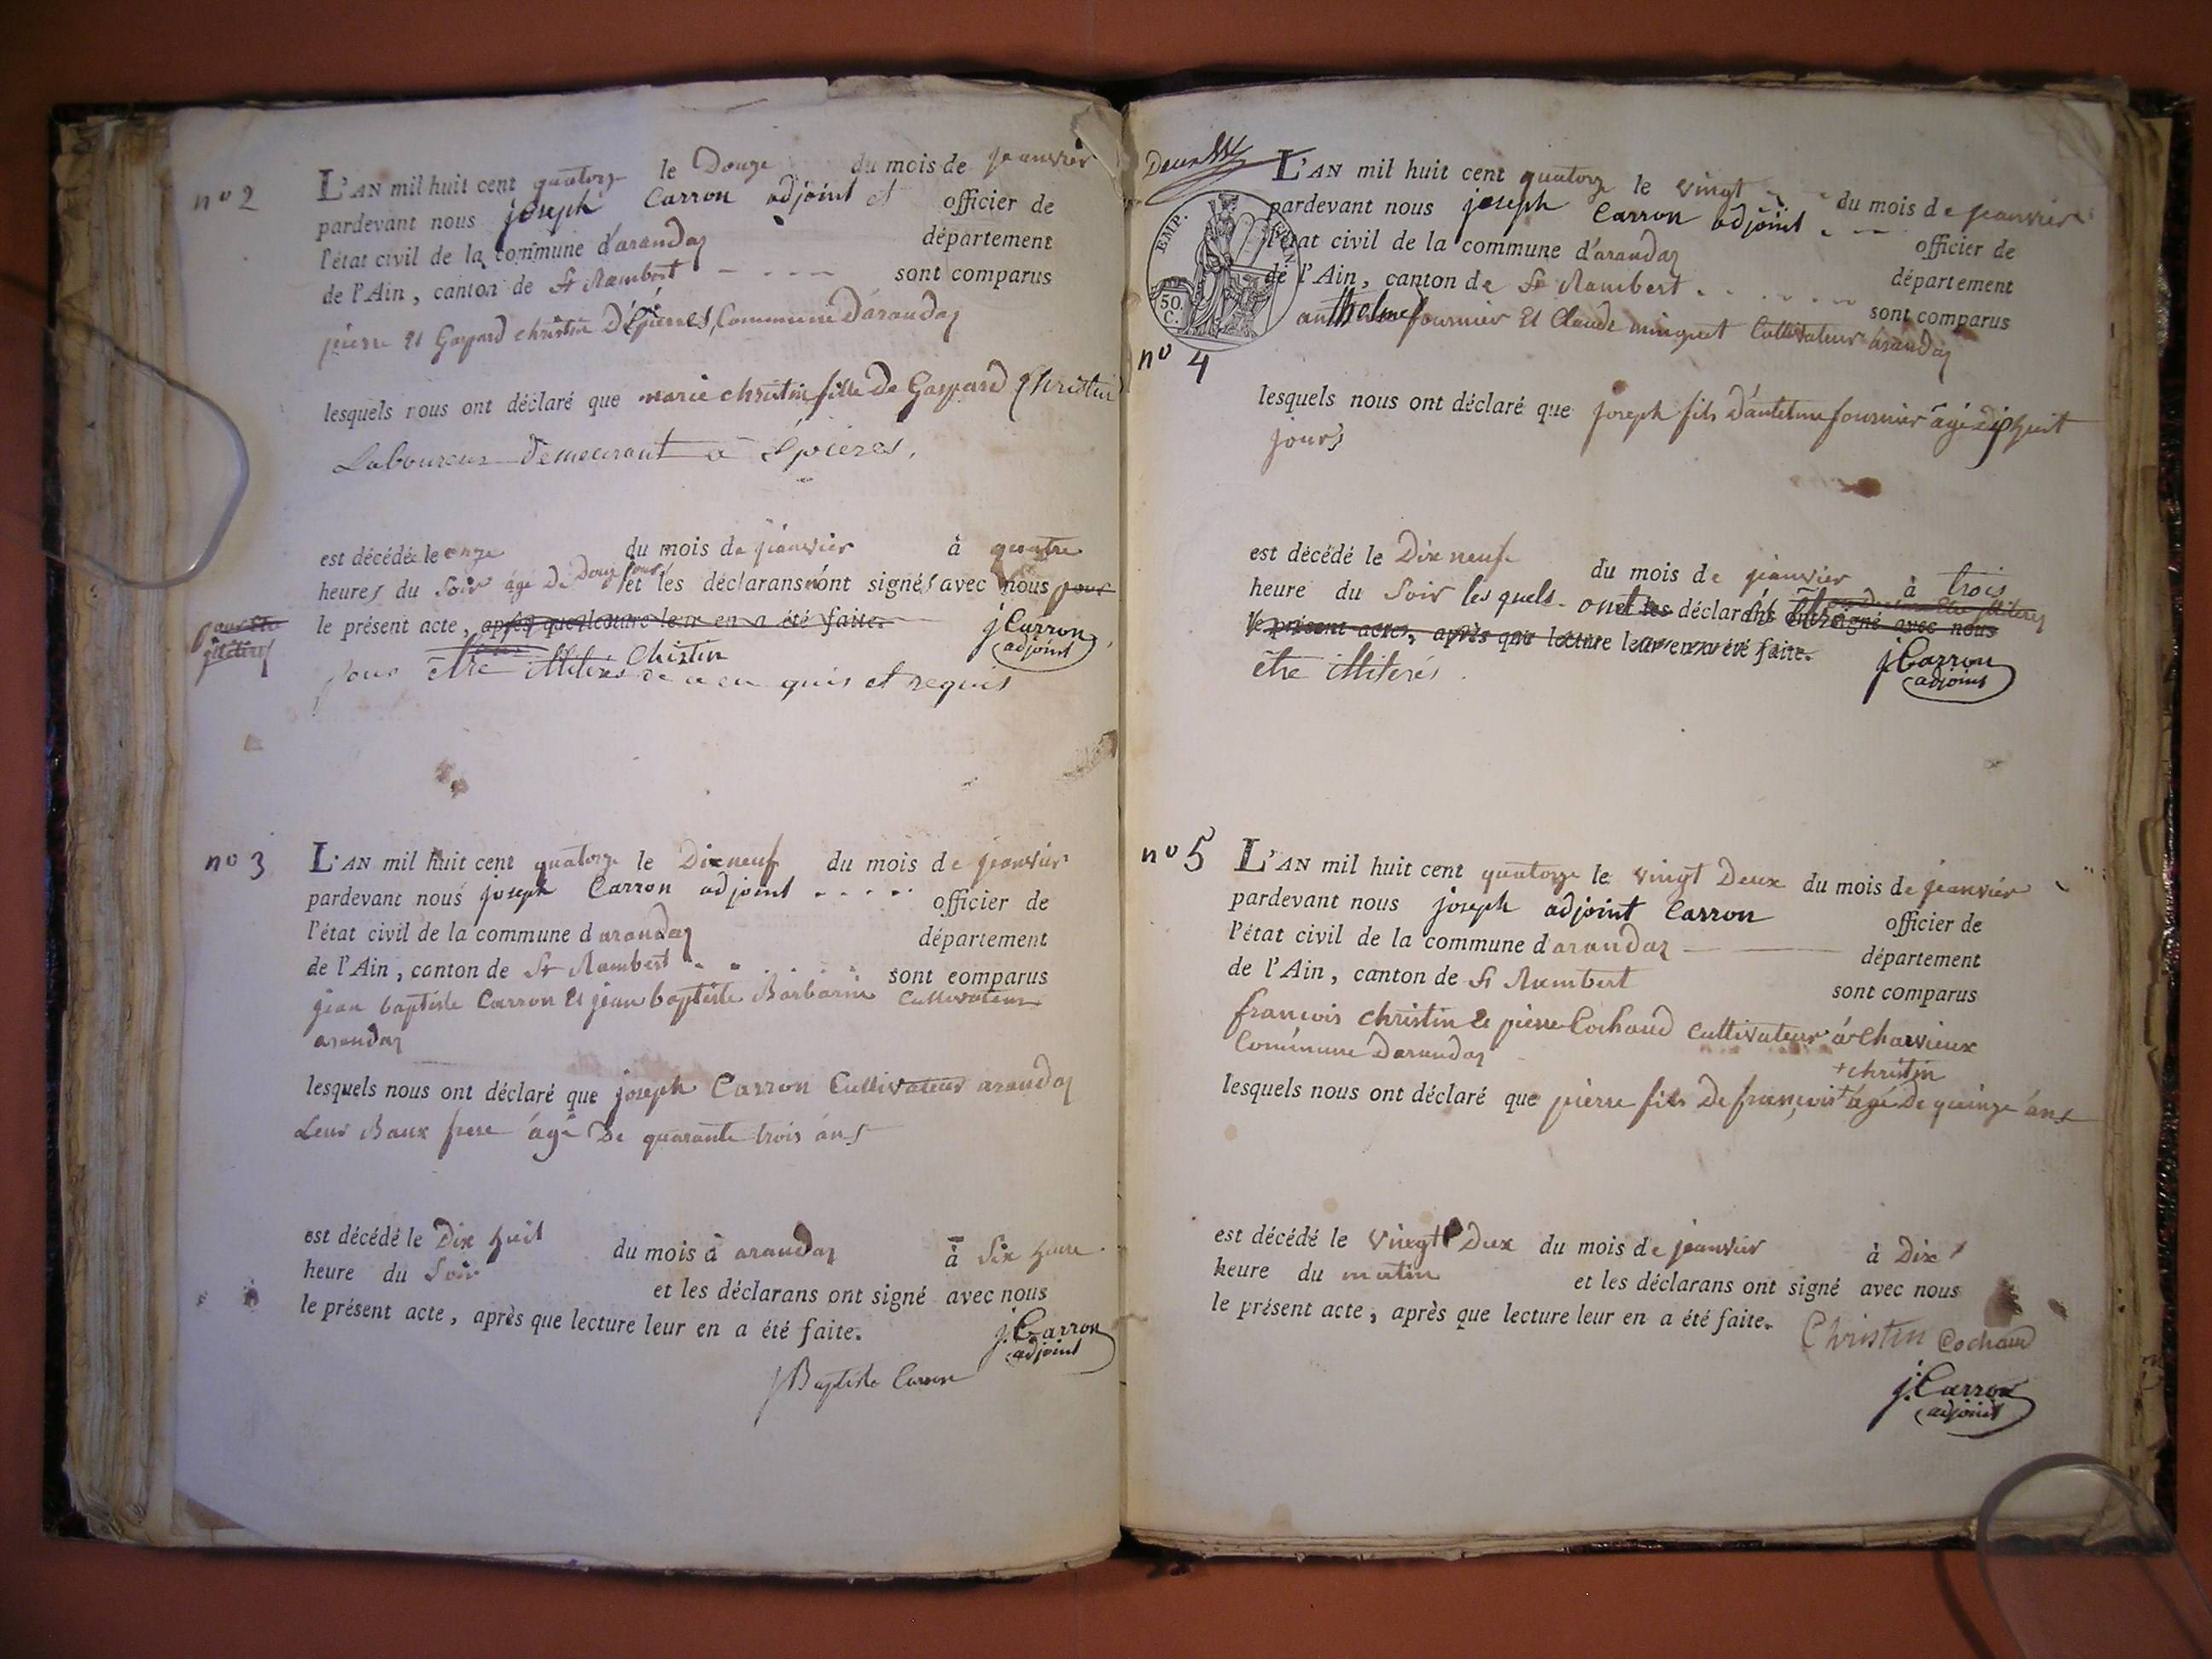 nº 2
L'AN mil huit cent quatorze le Douze du mois de jeanvier
pardevant nous joseph Carron adjoint et officier de
l'état civil de la commune d'arandaz département
de l'Ain, canton de St Rambert sont comparus
pierre Et Gaspard christin D'Épierres, Commune D'arandaz
lesquels nous ont déclaré que marie christin fille De Gaspard Christin
Laboureur Demeurant a Epieres,
est décédée le onze du mois de jeanvier à quatre
heures du Soir agé De Douze jours et les déclarans n'ont signés avec nous pour
le présent acte, après que lecture leur en a été faite. j Carron
adjoint
Christin
pour être illiterés de ce en quis et requis
nº 3
L'AN mil huit cent quatorze le Dixneuf du mois de jeanvier
pardevant nous joseph Carron adjoint officier de
l'état civil de la commune d arandaz département
de l'Ain, canton de St Rambert sont comparus
jean baptiste Carron Et jean baptiste Barbarin Cultivateur
arandaz
lesquels nous ont déclaré que joseph Carron Cultivateur arandaz
Leur Baux frere âgé De quarante trois áns
est décédé le Dix huit du mois à arandaz à Six heure
heure du Soir et les déclarans ont signé avec nous
le présent acte, après que lecture leur en a été faite. j. Carron
adjoint
J Baptiste Carron
EMP.
50
C.
nº 4
L'AN mil huit cent quatorze le vingt du mois de jeanvier
pardevant nous joseph Carron adjoint officier de
l'état civil de la commune d'arandaz département
de l'Ain, canton de St Rambert sont comparus
anthelme fournier Et Claude minguet Cultivateur arandaz
lesquels nous ont déclaré que joseph fils D'antelme fournier âgé Dix huit
jours
est décédé le Dix neuf du mois de jeanvier à trois
heure du Soir les quels ont déclarans signé avec nous
le présent acte, après que lecture leur en a été faite.
être illiterés. j Carron
adjoint
nº 5
L'AN mil huit cent quatorze le vingt Deux du mois de jeanvier
pardevant nous joseph adjoint Carron officier de
l'état civil de la commune d arandaz département
de l'Ain, canton de St Rambert sont comparus
francois christin Et pierre Cochaud Cultivateur á Charvieux
Commune Darandaz
+ christin
lesquels nous ont déclaré que pierre fils De francois + âgé De quinze áns
est décédé le vingt Deux du mois de jeanvier à Dix
heure du matin et les déclarans ont signé avec nous
le présent acte, après que lecture leur en a été faite.
Christin Cochaud
j. Carron
adjoint